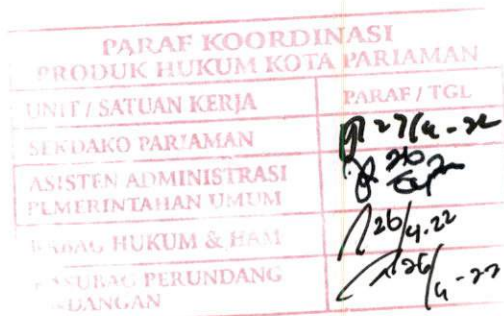 PARAF KOORDINASI
PRODUK HUKUM KOTA PARIAMAN
UNIT / SATUAN KERJA PARAF / TGL
SEKDAKO PARIAMAN 27/4-22
ASISTEN ADMINISTRASI
PEMERINTAHAN UMUM
HUKUM & HAM 26/4.22
PERUNDANG 26/4-22